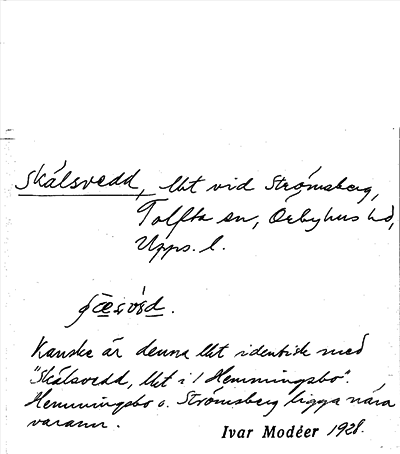 Skålsvedd, lht vid Strömsberg,
Tolfta sn, Örbyhus hd,
Upps. l.
Kanske är denna lht identisk med
"Skålsvedd, lht i / Hemmingsbo".
Hemmingsbo o. Strömsberg ligga nära
varann.
Ivar Modéer 1928.